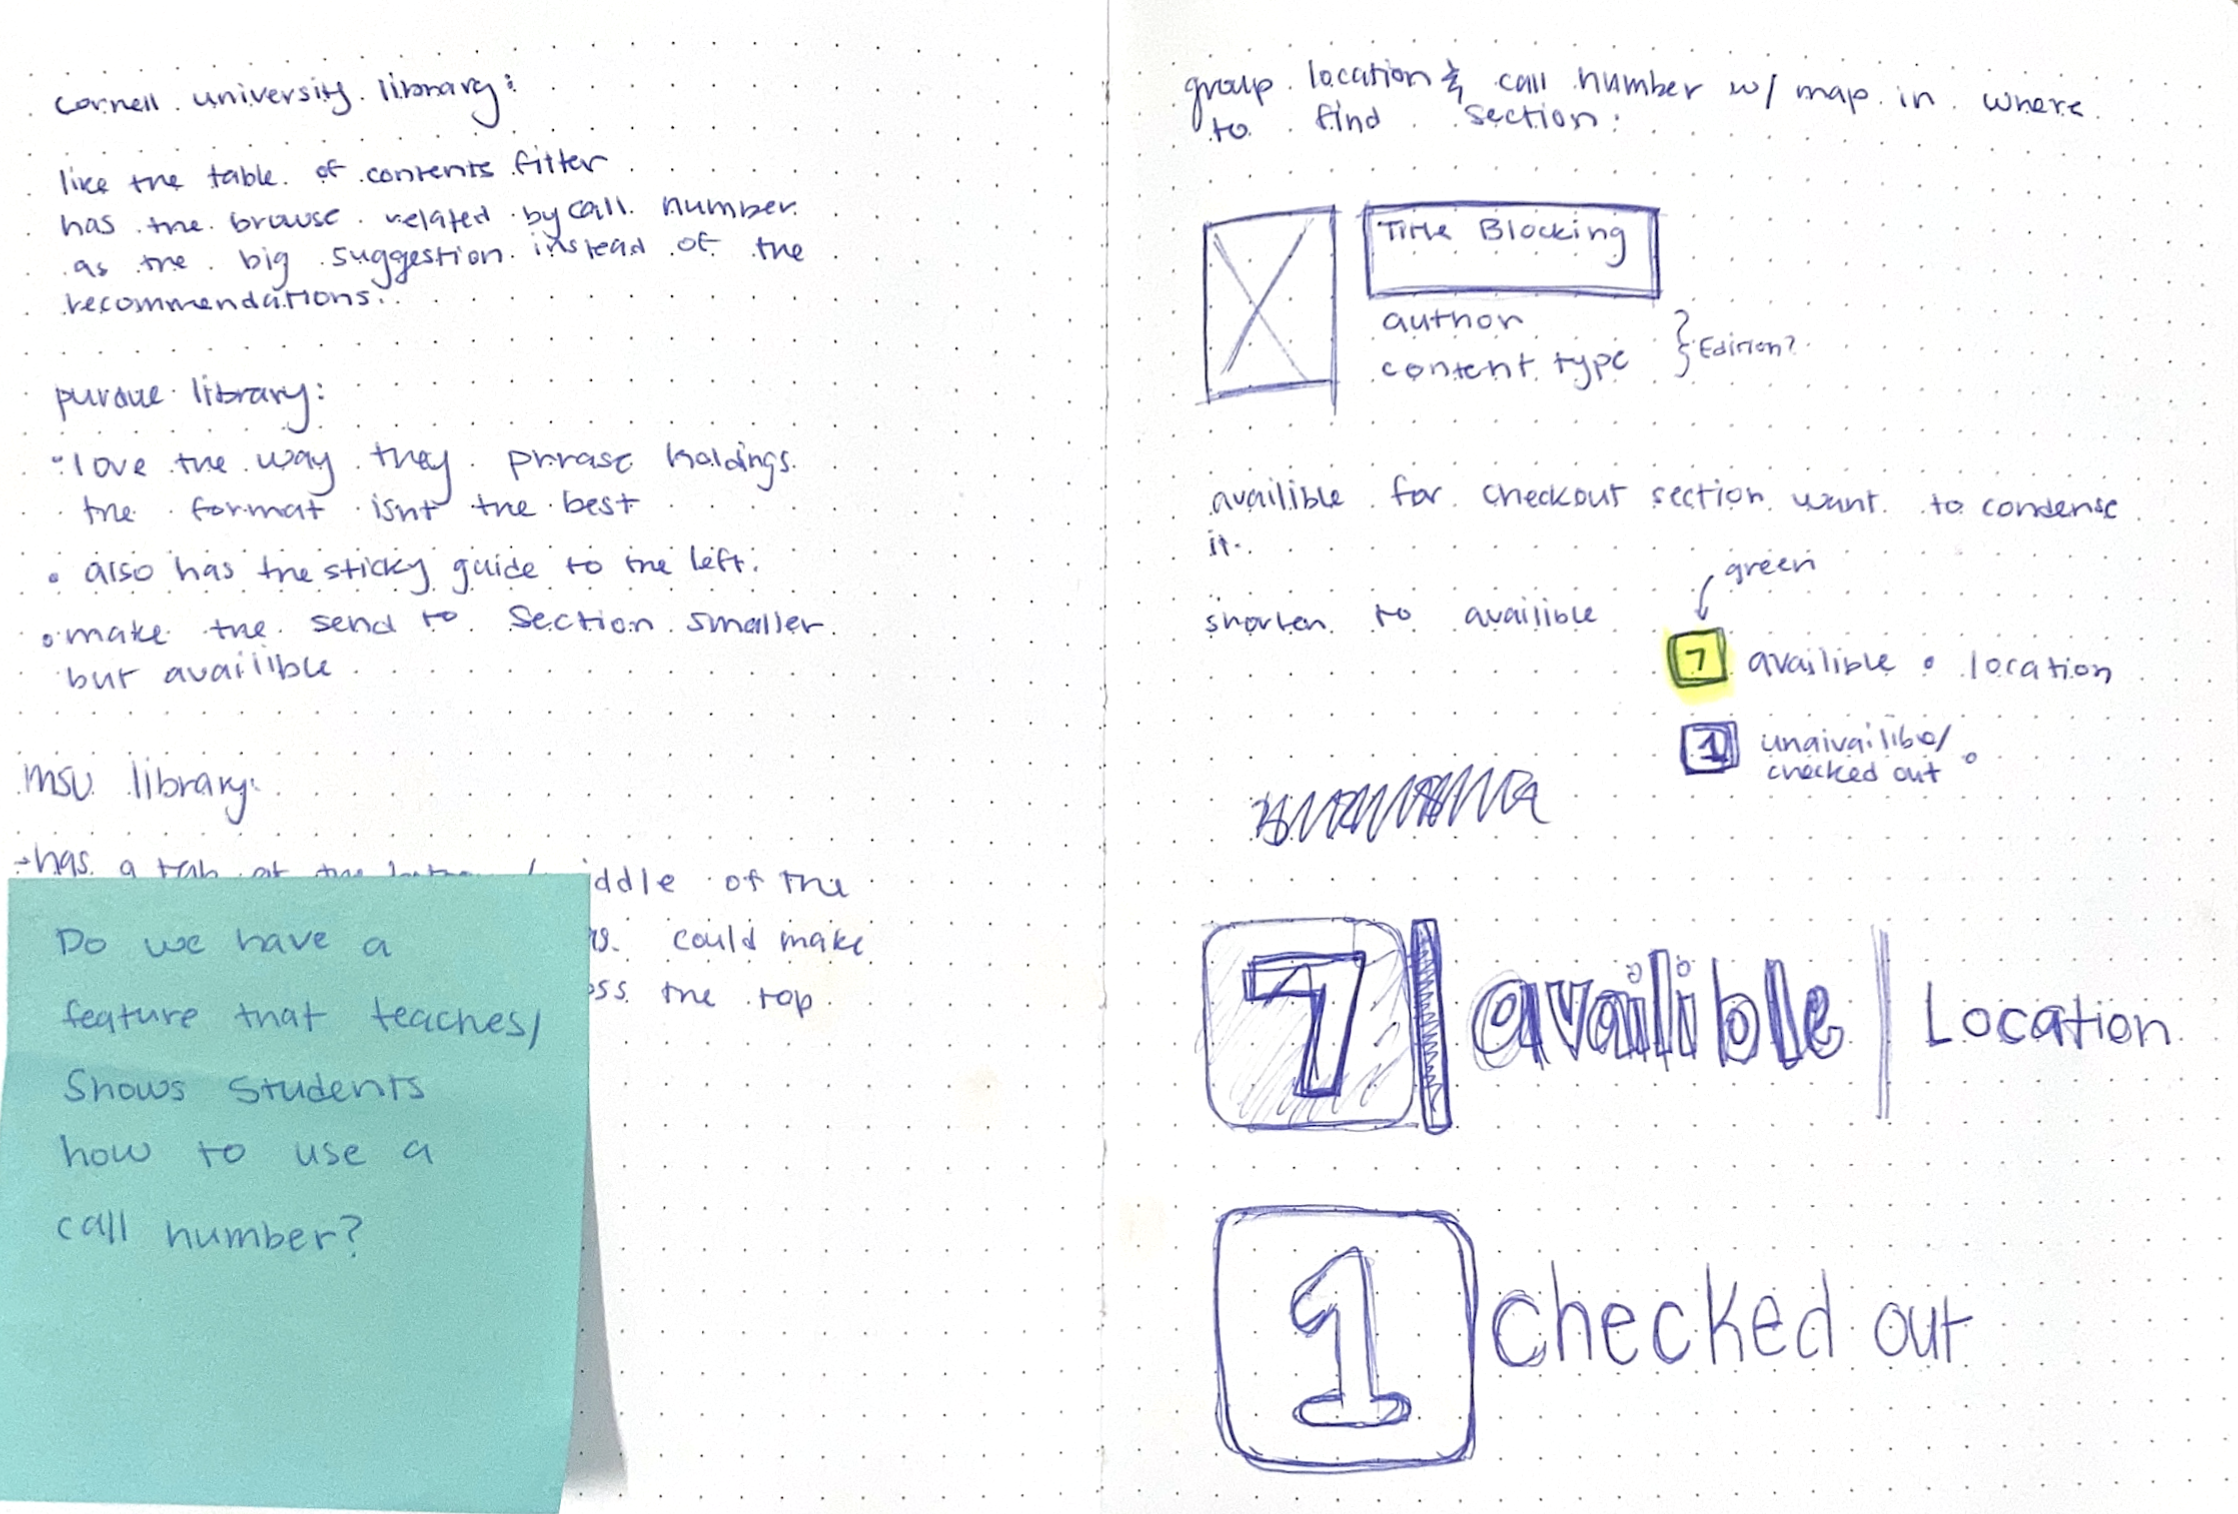 cornell university library:
like the table of contents filter
has the browse related by call number
as the big suggestion instead of the
recommendations.
purdue library:
• love the way they phrase holdings.
the format isnt the best
• also has the sticky guide to the left.
• make the send to section smaller
but availible
MSU library:
-has a tab at the
ddle of the
could make
the top
Do we have a
feature that teaches/
Shows Students
how to use a
call number?
group location & call number w/ map in where
to find section:
Title Blocking
author
content type
} Edition?
availible for checkout section want to condense
it.
green
shorten to availible
7 availible • location
1 unaivailible/
checked out •
7 | availible | Location
1 checked out